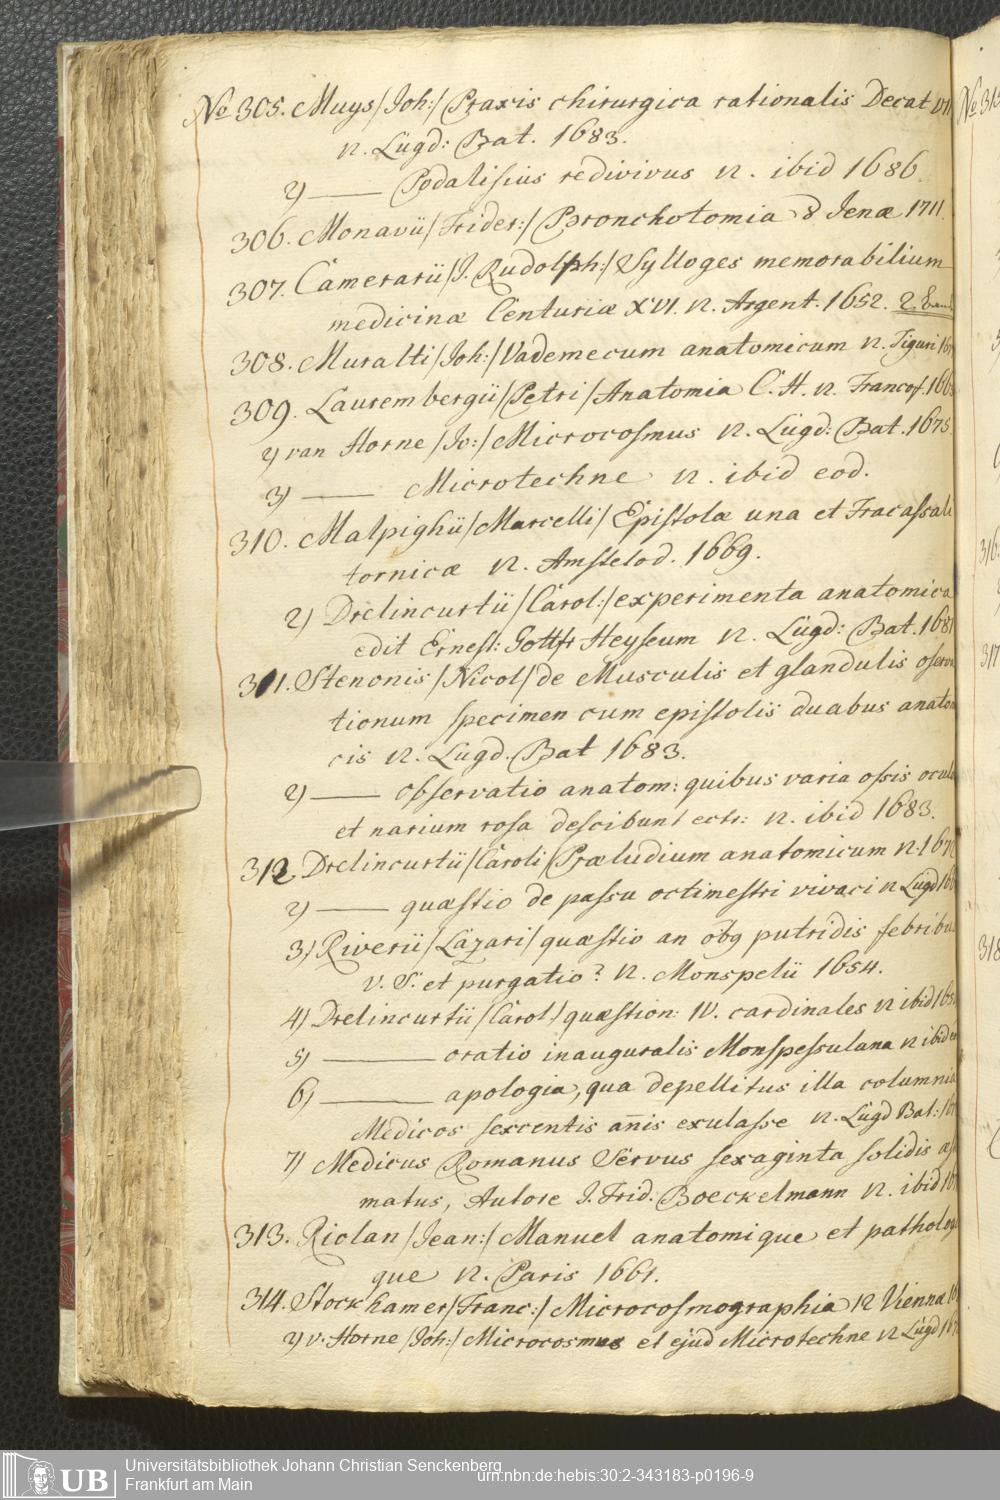 No 305. Muys /Joh:/ Praxis chirurgica rationalis Decat VII
12. Lügd: Bat. 1683.
2) —— Podalisius redivivus 12. ibid 1686.
306. Monavii /Frider:/ Bronchotomia 8 Jenæ 1711.
307. Camerarii /J. Rudolph:/ Sylloges memorabilium
medicinæ Centuriæ XVI. 12. Argent. 1652. 2
308. Muralti /Joh:/ Vademecum anatomicum 12. Tiguri 16
309. Laurembergii /Petri/ Anatomia C. H. 12. Francof. 166
2) van Horne /Jo:/ Microcosmus 12. Lügd: Bat. 1675
3) —— Microtechne 12. ibid eod.
310. Malpighii /Marcelli/ Epistolæ una et Fracassati
tornicæ 12. Amstelod. 1669.
2) Drelincurtii /Carol:/ experimenta anatomica
edit Ernest: Gottfr Heyseum 12. Lügd: Bat. 1681
311. Stenonis /Nicol/ de Musculis et glandulis oserva
tionum specimen cum epistolis duabus anatom
cis 12. Lugd. Bat 1683.
2) —— observatio anatom: quibus varia ossis ocul
et narium rosa descibunt ectr: 12. ibid 1683.
312. Drelincurtii /Caroli/ Præludium anatomicum 12. 167
2) —— quæstio de passu octimestri vivaci 12 Lügd 16
3) Riverii /Läzari/ quæstio an obg putridis febribus
V. S. et purgatio? 12. Monspelii 1654.
4) Drelincurtii /Carol:/ quæstion: IV. cardinales 12 ibid 165
5) —— oratio inauguralis Monspessulana 12 ibid e
6) —— apologia, qua depellitus illa columnia
Medicos sexcentis añis exulasse 12. Lügd Bat: 16
7) Medicus Romanus Servus sexaginta solidis æs
matus, Autore J. Frid. Boeckelmann 12. ibid 16
313. Riolan /Jean:/ Manuel anatomique et patholog
que 12. Paris 1661.
314. Stockhamer /Franc:/ Microcosmographia 12 Viennæ 16
2) v. Horne /Joh:/ Microcosmus et ejud Microtechne 12 Lügd 16
No 315
316
317
318
UB
Universitätsbibliothek Johann Christian Senckenberg
Frankfurt am Main
urn:nbn:de:hebis:30:2-343183-p0196-9